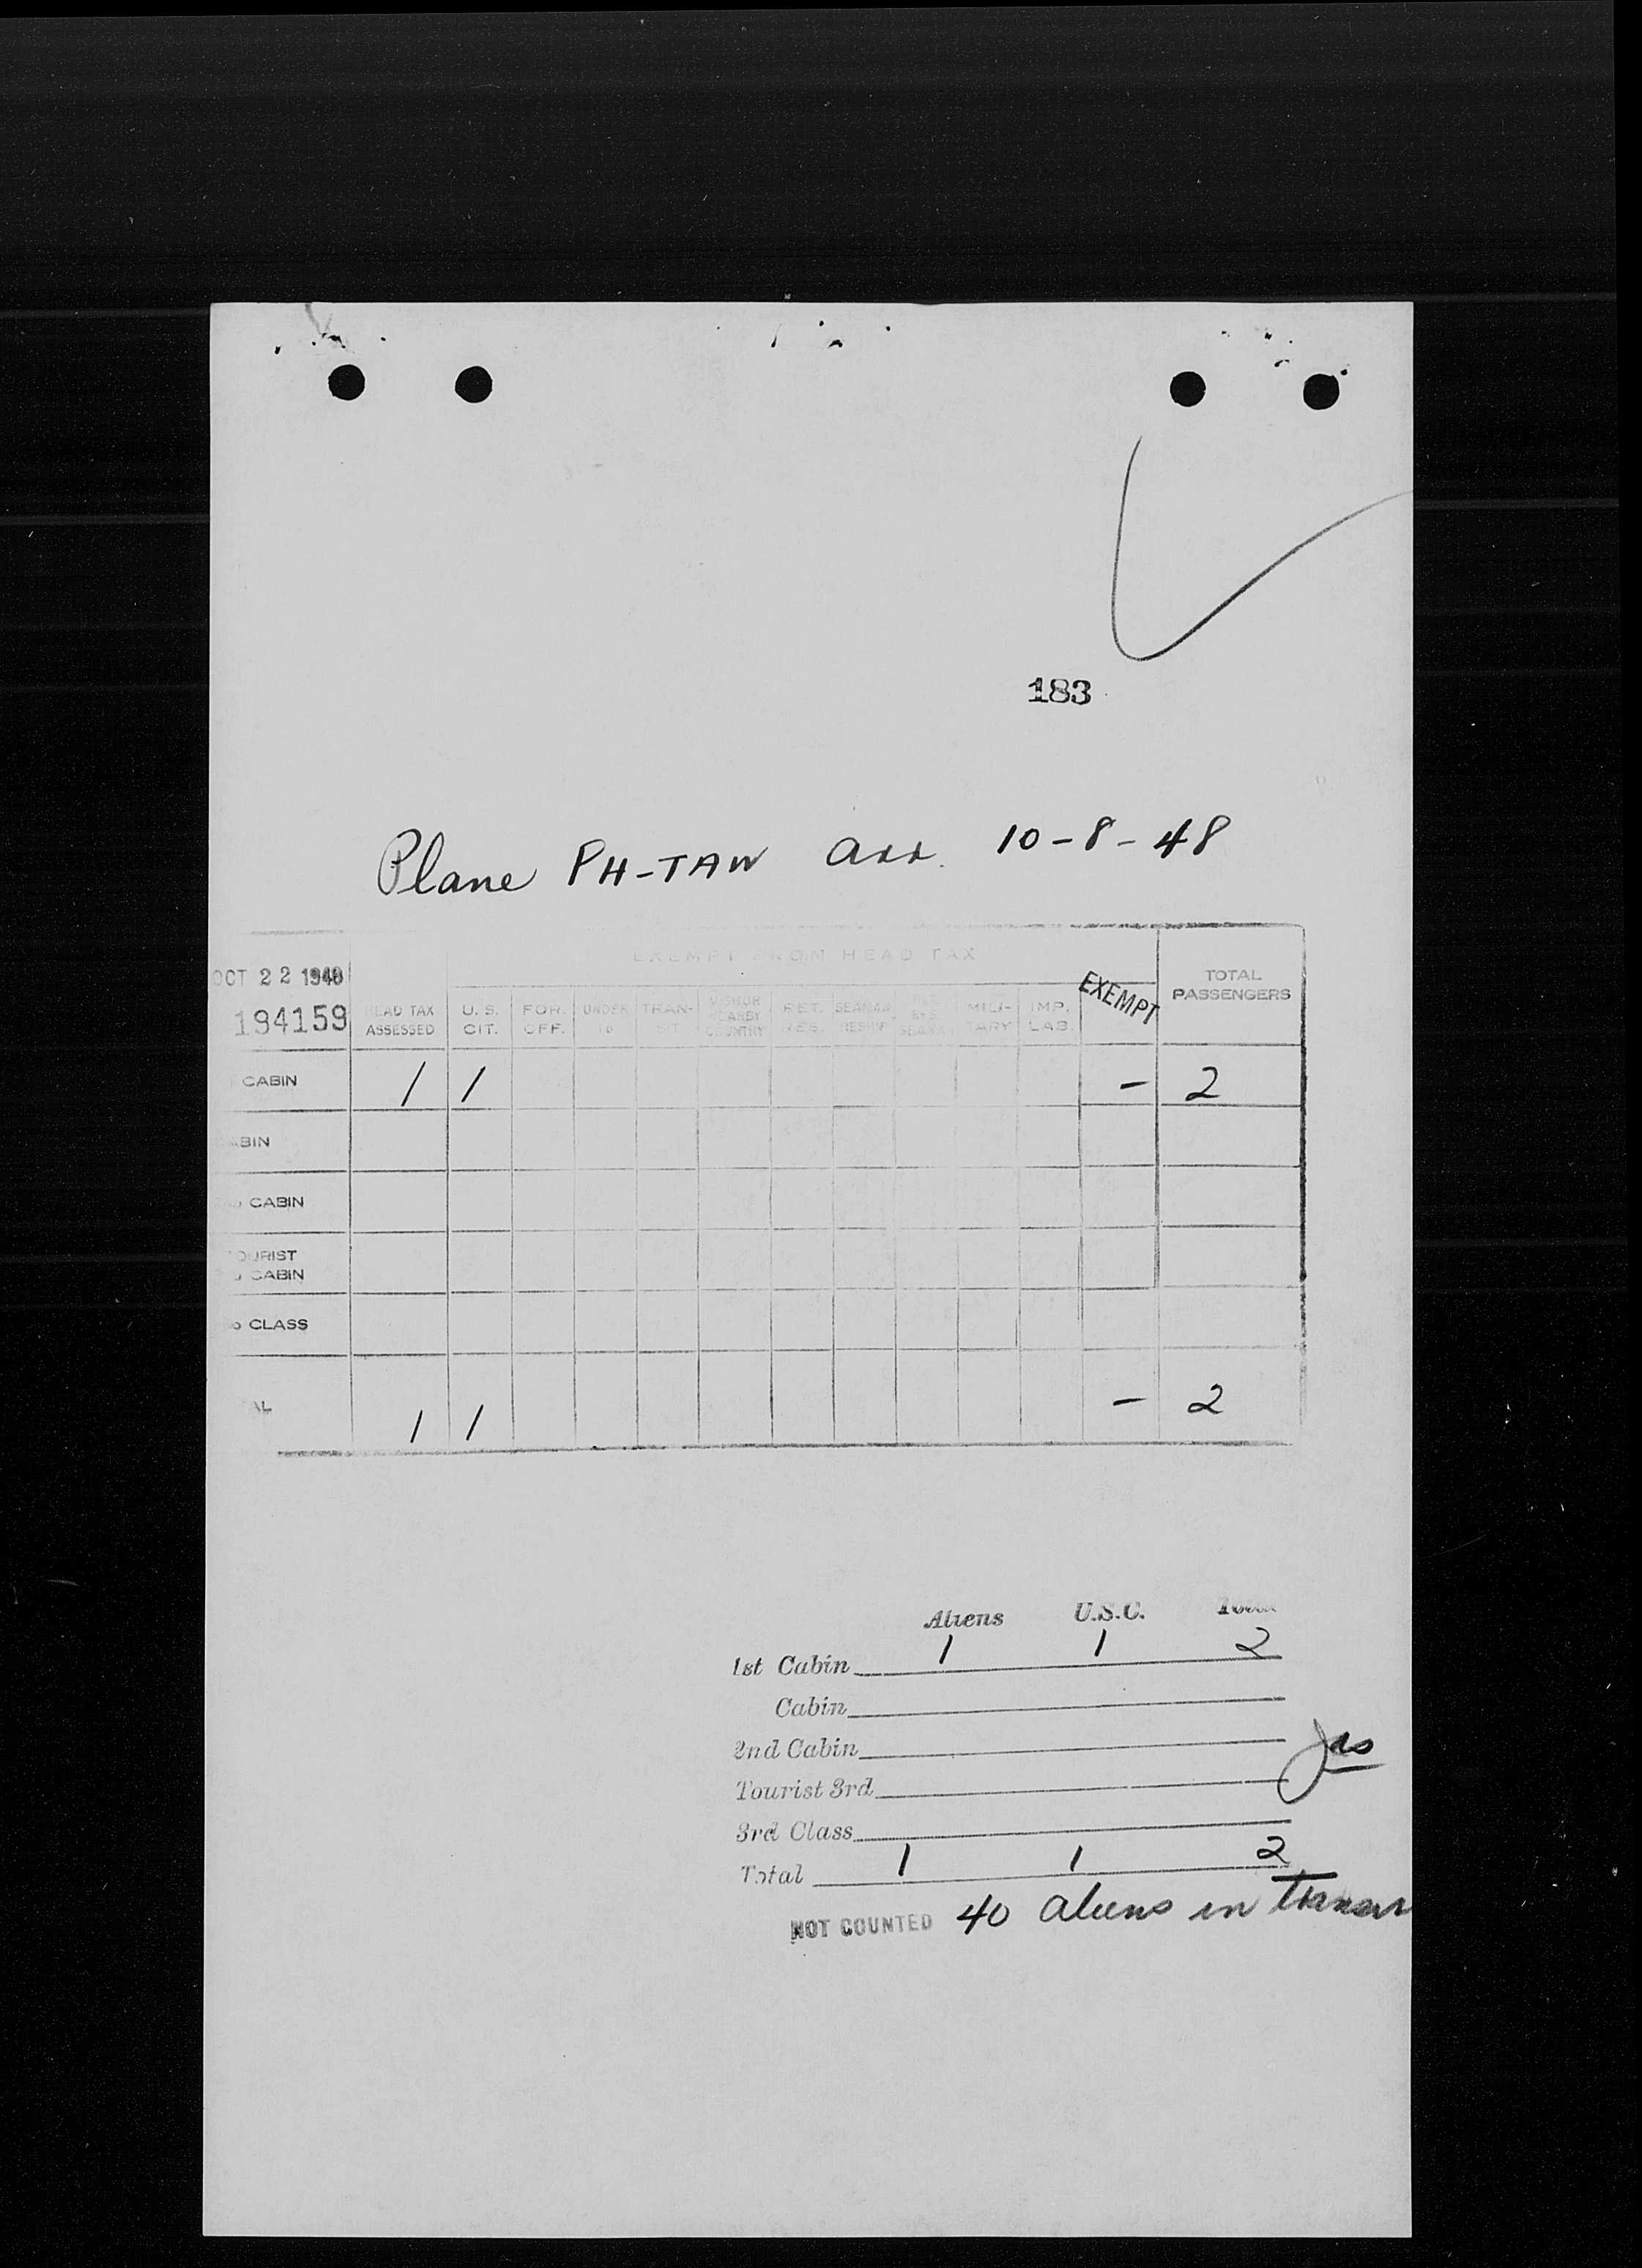 183
Plane PH-TAW arr. 10-8-48
EXEMPT FROM HEAD TAX
OCT 22 1948
194159
HEAD TAX ASSESSED U.S. CIT. FOR. OFF. UNDER 16 TRAN- SIT VISITOR NEARBY COUNTRY RET. RES. SEAMAN RESHIP SEAMAN MILI- TARY IMP. LAB. EXEMPT TOTAL PASSENGERS
CABIN 1 1 - 2
ABIN
CABIN
OURIST
CABIN
CLASS
AL 1 1 - 2
Aliens U.S.C. Total
1st Cabin 1 1 2
Cabin
2nd Cabin
Tourist 3rd
3rd Class
Total 1 1 2
NOT COUNTED 40 aliens in